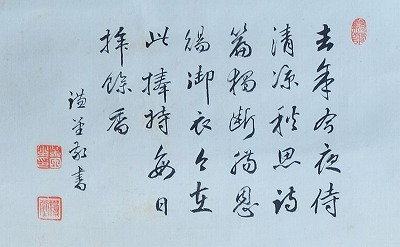 去年今夜侍
清涼秋思詩
篇獨斷腸恩
賜御衣今在
此捧持毎日
拝餘香
堂敬書